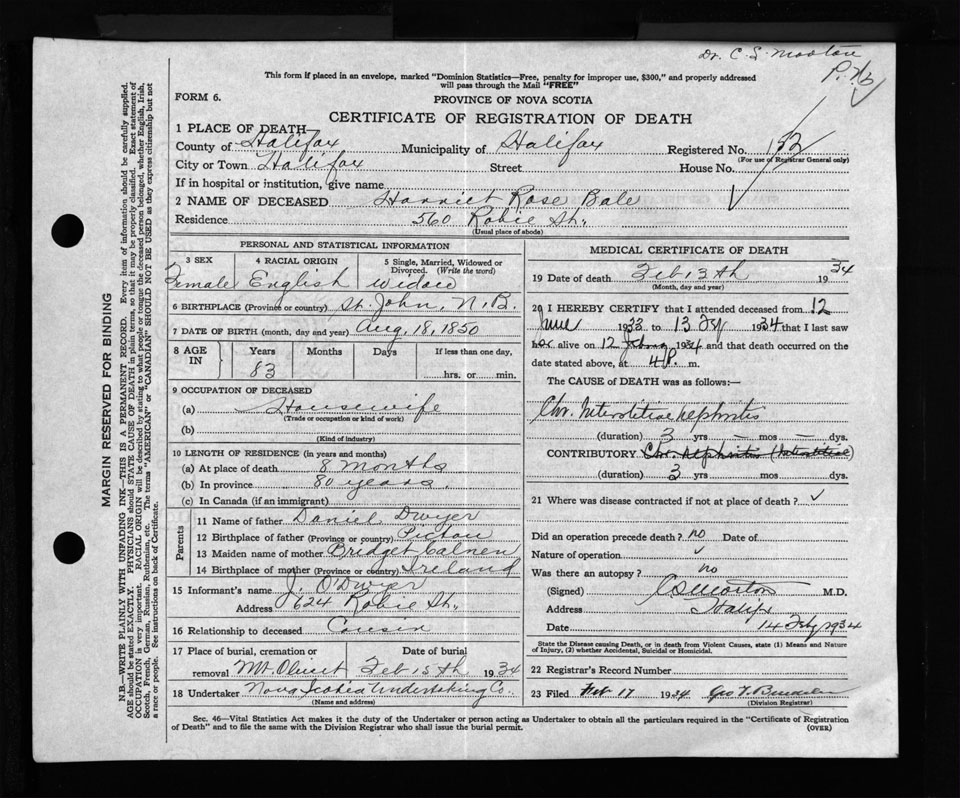 Dr. C. S. Morton
P. No
This form if placed in an envelope, marked "Dominion Statistics—Free, penalty for improper use, $300," and properly addressed
will pass through the Mail "FREE"
FORM 6.
PROVINCE OF NOVA SCOTIA
CERTIFICATE OF REGISTRATION OF DEATH
1 PLACE OF DEATH
County of Halifax Municipality of Halifax Registered No. 152
(For use of Registrar General only)
City or Town Halifax Street House No.
If in hospital or institution, give name
2 NAME OF DECEASED Harriet Rose Bale
Residence 560 Robie St.
(Usual place of abode)
PERSONAL AND STATISTICAL INFORMATION
3 SEX 4 RACIAL ORIGIN 5 Single, Married, Widowed or Divorced. (Write the word)
Female English Widow
6 BIRTHPLACE (Province or country) St. John, N.B.
7 DATE OF BIRTH (month, day and year) Aug. 18, 1850
8 AGE IN Years Months Days If less than one day,
83 hrs. or min.
9 OCCUPATION OF DECEASED
(a) Housewife
(Trade or occupation or kind of work)
(b)
(Kind of industry)
10 LENGTH OF RESIDENCE (in years and months)
(a) At place of death 8 months
(b) In province 80 years.
(c) In Canada (if an immigrant)
Parents
11 Name of father Daniel Dwyer
12 Birthplace of father (Province or country) Pictou
13 Maiden name of mother Bridget Calnen
14 Birthplace of mother (Province or country) Ireland
15 Informant's name J. O'Dwyer
Address 624 Robie St.,
16 Relationship to deceased Cousin
17 Place of burial, cremation or removal Date of burial
Mt. Olivet Feb 15th 1934
18 Undertaker Nova Scotia Undertaking Co.
(Name and address)
MEDICAL CERTIFICATE OF DEATH
19 Date of death Feb 13th 1934
(Month, day and year)
20 I HEREBY CERTIFY that I attended deceased from 12
June 1933 to 13 Feby 1934 that I last saw
her alive on 12 1934 and that death occurred on the
date stated above, at 4 P. m.
The CAUSE OF DEATH was as follows:
Chr. Interstitial nephritis
(duration) 3 yrs — mos — dys.
CONTRIBUTORY Chr. nephritis (Interstitial)
(duration) 3 yrs mos dys.
21 Where was disease contracted if not at place of death? ✓
Did an operation precede death? no Date of
Nature of operation ✓
Was there an autopsy? no
(Signed) CS Morton M.D.
Address Halifx
Date 14 Feby 1934
State the Disease causing Death, or in death from Violent Causes, state (1) Means and Nature
of Injury, (2) whether Accidental, Suicidal or Homicidal.
22 Registrar's Record Number
23 Filed Feb 17 1934 Geo
(Division Registrar)
Sec. 46—Vital Statistics Act makes it the duty of the Undertaker or person acting as Undertaker to obtain all the particulars required in the "Certificate of Registration
of Death" and to file the same with the Division Registrar who shall issue the burial permit. (OVER)
MARGIN RESERVED FOR BINDING
N.B.—WRITE PLAINLY WITH UNFADING INK—THIS IS A PERMANENT RECORD. Every item of information should be carefully supplied.
AGE should be stated EXACTLY. PHYSICIANS should STATE CAUSE OF DEATH in plain terms, so that it may be properly classified. Exact statement of
OCCUPATION is very important. RACIAL ORIGIN will be described by stating to what people or tongue the deceased person belonged, whether English, Irish,
Scotch, French, German, Russian, Ruthenian, etc. The terms "AMERICAN" or "CANADIAN" SHOULD NOT BE USED as they express citizenship but not
a race or people. See instructions on back of Certificate.